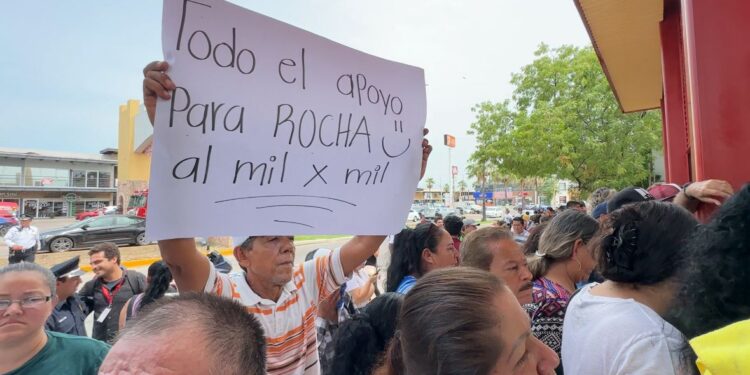 Todo el apoyo
Para ROCHA :)
al mil x mil